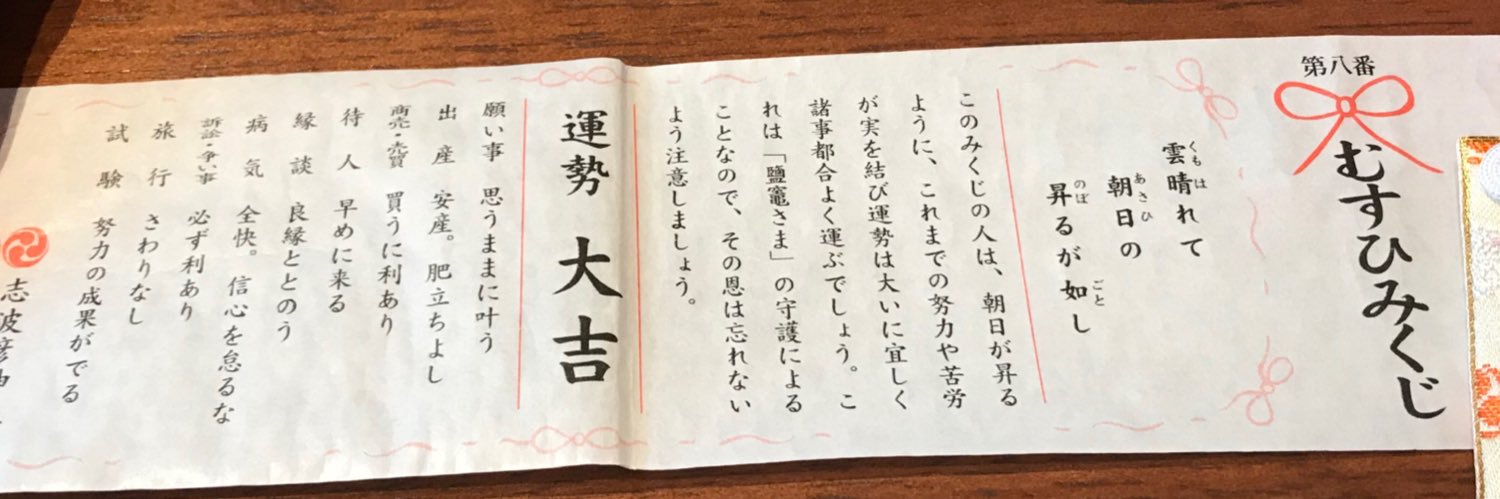 第八番
むすひみくじ
雲晴れて
くもは
朝日の
あさひ
昇るが如し
のぼ
ごと
このみくじの人は、朝日が昇る
ように、これまでの努力や苦労
が実を結び運勢は大いに宜しく
諸事都合よく運ぶでしょう。こ
れは「鹽竈さま」の守護による
ことなので、その恩は忘れない
よう注意しましょう。
運勢 大吉
願い事 思うままに叶う
出産 安産。肥立ちよし
商売・売買 買うに利あり
待人 早めに来る
縁談 良縁ととのう
病気 全快。信心を怠るな
訴訟・争い事 必ず利あり
旅行 さわりなし
試験 努力の成果がでる
志波彦